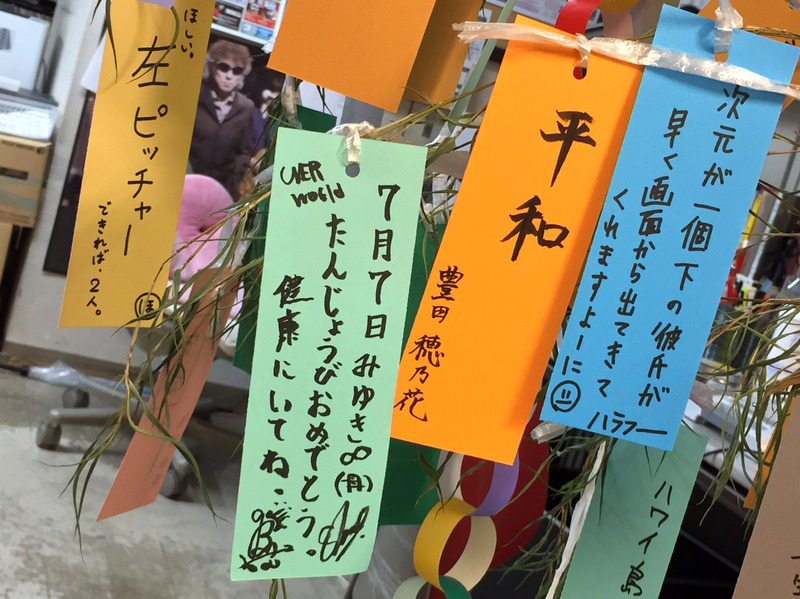 ほしい。
左ピッチャー
できれば、2人。
ほ
UVER
world
7月7日みゆき∞(月)
たんじょうびおめでとう。
健康にいてね
平和
豊田 穂乃花
次元が一個下の彼氏が
早く画面から出てきて
くれますよーに
ハラフー
ハワイ島